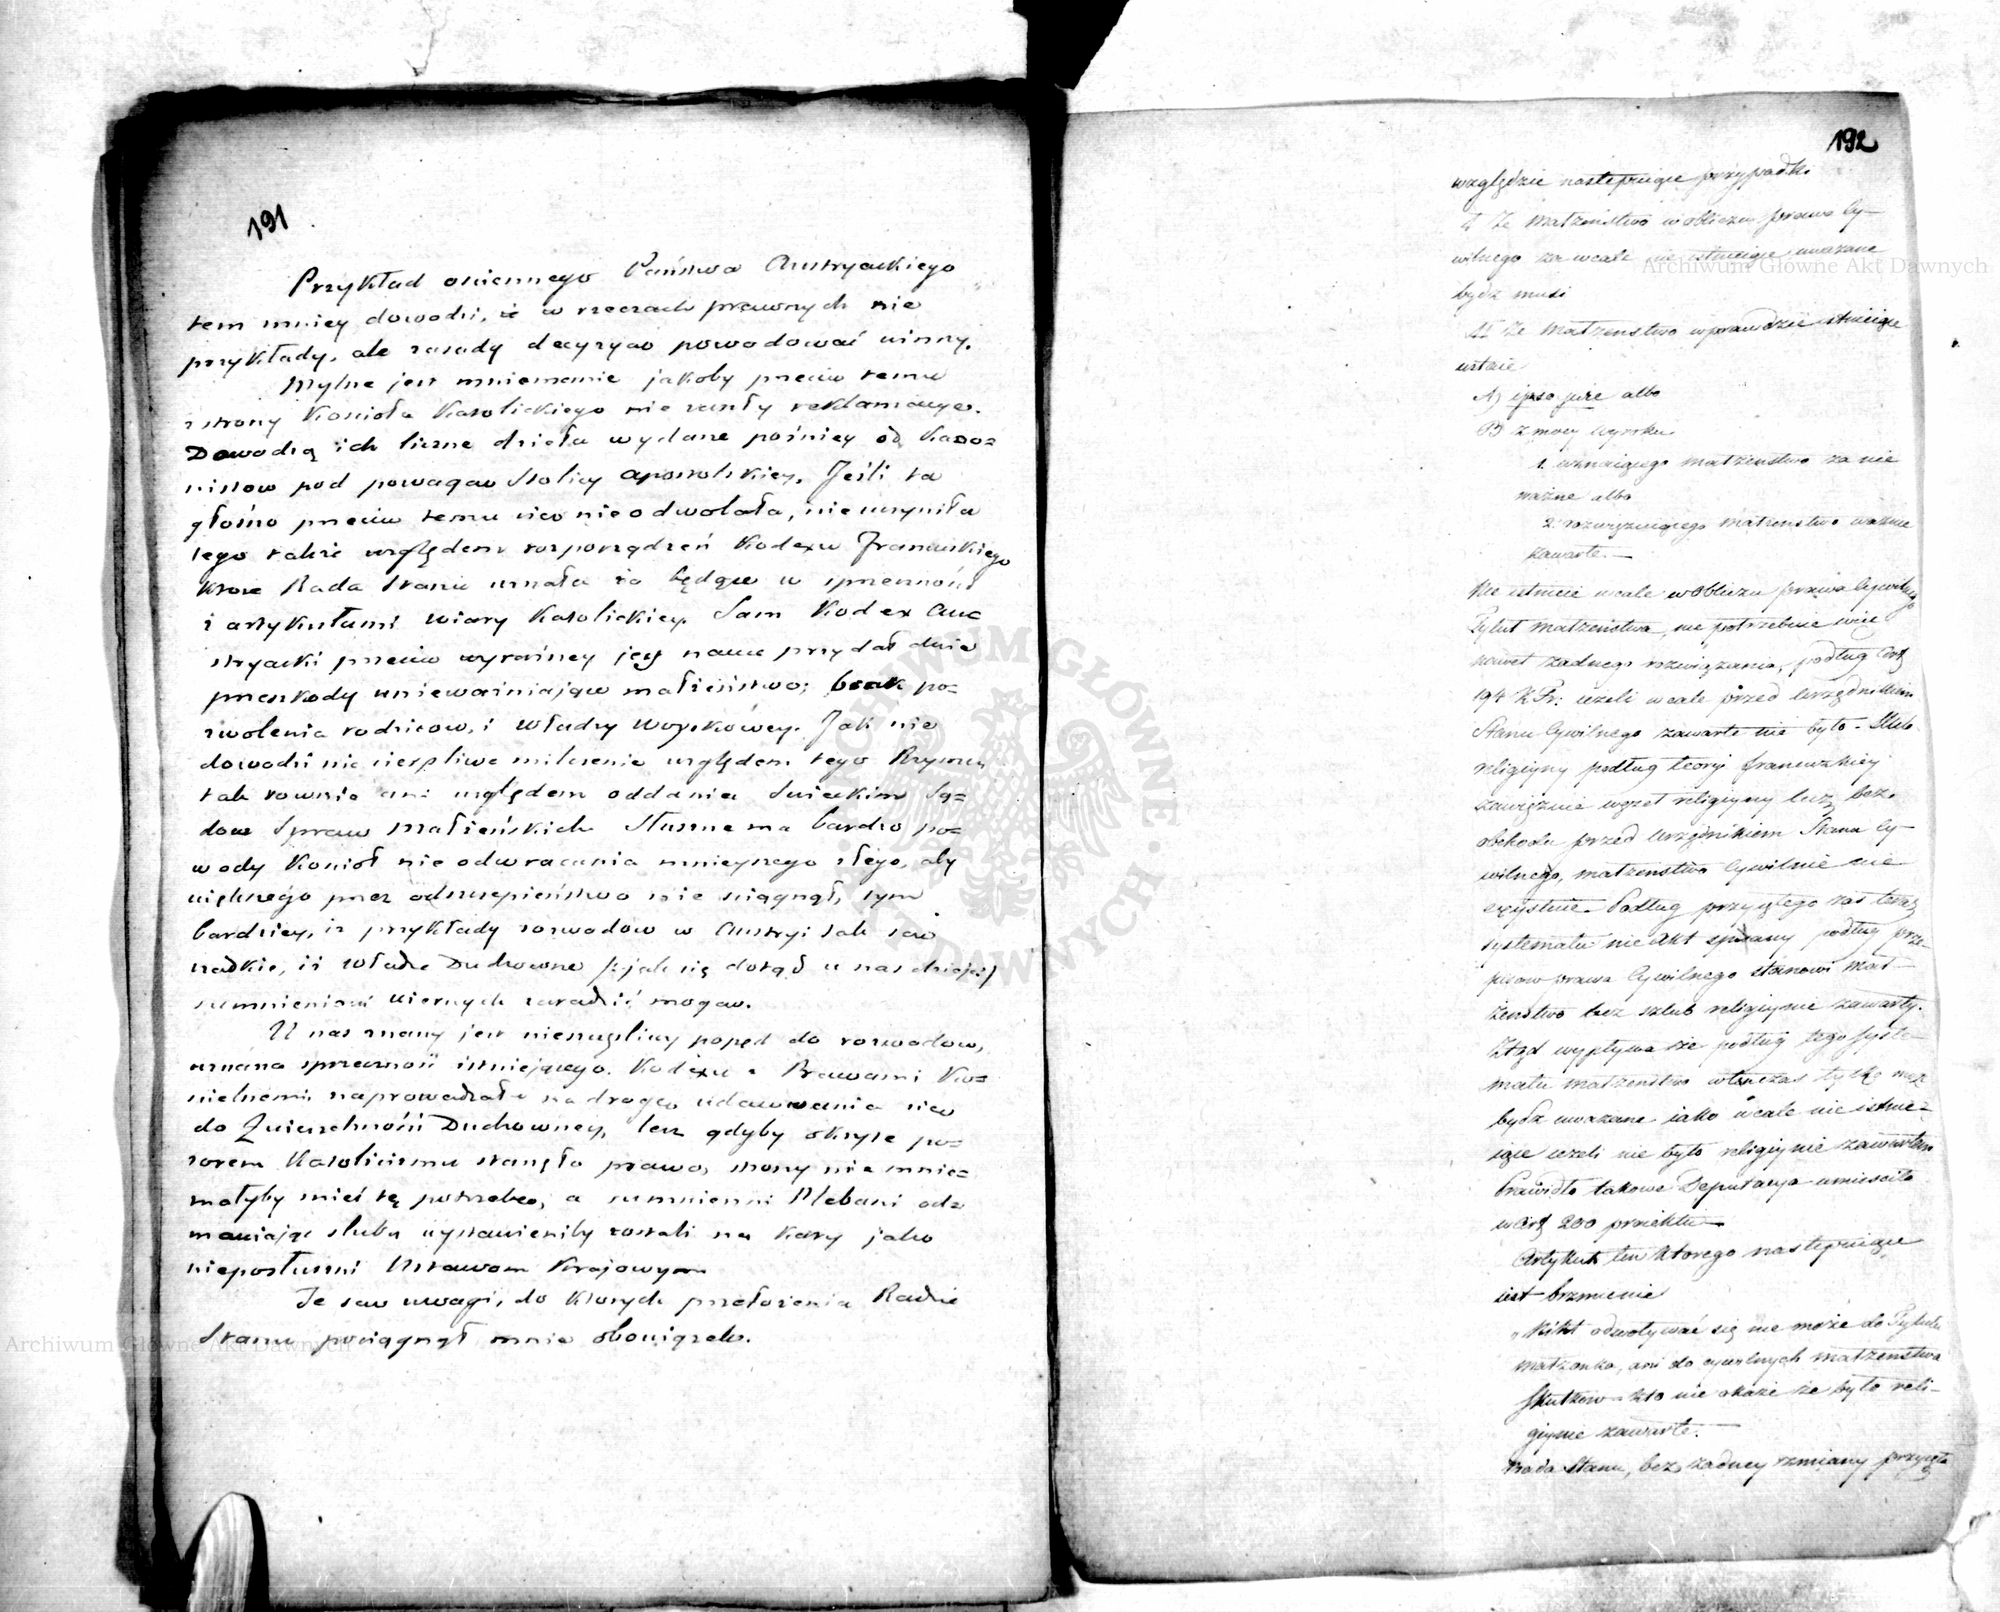 191
Przykład ościennego Państwa Austryackiego
tem mniey dowodzi, że w rzeczach prawnych nie
przykłady, ale zasady decyzyą powodować winny.
Mylne jest mniemanie jakoby przeciw temu
z strony Kościoła Katolickiego nie zaszły reklamacye.
Dowodzą ich liczne dzieła wydane poźniey od Kano=
nistow pod powagą Stolicy Apostolskiey. Jeśli ta
głośno przeciw temu nie odwołała, nie uczyniła
tego także względem rozporządzeń Kodexu Francuskiego
ktore Rada Stanu uznała za będące w sprzeczności
z artykułami wiary Katolickiey. Sam Kodex Aus
tryacki przeciw wyraźney jey nauce przydał dwie
przeszkody unieważniające małżeństwo; brak po=
zwolenia rodzicow, i władzy woyskowey. Jak nie
dowodzi nic cierpliwe milczenie względem tego Rzymu,
tak rownie ani względem oddania Świeckim Są=
dom Spraw Małżeńskich Słuszne ma bardzo po=
wody Kościoł nie odwracania mnieyszego złego, aby
większego przez odszczepieństwo nie ściągnął, tym
bardziey, iż przykłady rozwodow w Austryi tak są
rzadkie, iż władze Duchowne /:jak się dotąd u nas dzieje:/
sumnieniom wiernych zaradzić mogą.
U nas znany jest nieszczęśliwy popęd do rozwodow,
uznana sprzeczność istniejącego Kodexu z Prawami Ko=
ścielnemi naprowadzała na drogę udawania się
do Zwierzchności Duchowney, lecz gdyby okryte po=
zorem Katolicizmu stanęło prawo, strony nie mnie=
małyby mieć tę potrzebę, a sumnienni Plebani od=
mawiając ślubu wystawieniby zostali na kary jako
nieposłuszni Ustawom Krajowym
Te są uwagi, do ktorych przełożenia Radzie
Stanu pociągnął mnie obowiązek.
192
względzie następuiące przypadki
I Że Małżeństwo w obliczu prawa Cy-
wilnego za wcale nie istnieiące uważane
bydź musi
II Że Małżeństwo wprawdzie istnieiące
ustaie
A) ipso jure albo
B) z mocy wyroku
1. uznaiącego małżeństwo za nie
ważne albo
2. rozwięzuiącego małżeństwo ważnie
zawarte.—
Nie istnieie wcale w obliczu prawa Cywilnego
Tytuł Małżeństwa, nie potrzebuie więc
nawet żadnego rozwiązania, podług Art
194 K Fr: ieżeli wcale przed Urzędnikiem
Stanu Cywilnego zawarte nie było - Ślub
religiyny podług teoryi francuzkiey
zawięzuie węzeł religiyny lecz bez
obchodu przed Urzędnikiem Stanu Cy-
wilnego, małżeństwo Cywilnie nie
exystuie. Podług przyiętego zaś teraz
systematu nie Akt spisany podług prze-
pisow prawa Cywilnego stanowi Mał-
żeństwo lecz szlub religiynie zawarty.
Ztąd wypływa że podług tego syste-
matu małżeństwo wtenczas tylko może
bydź uważane iako wcale nie istnie=
iące ieżeli nie było religiynie zawartem
Prawidło takowe Deputacya umieściła
w Art 200 proiektu—
Artykuł ten którego następuiące
iest brzmienie
„Nikt odwoływać się nie może do Tytułu
małżonka, ani do cywilnych małżeństwa
skutkow kto nie okaże że było reli-
giynie zawarte.—
Rada Stanu, bez żadney zmiany przyięła